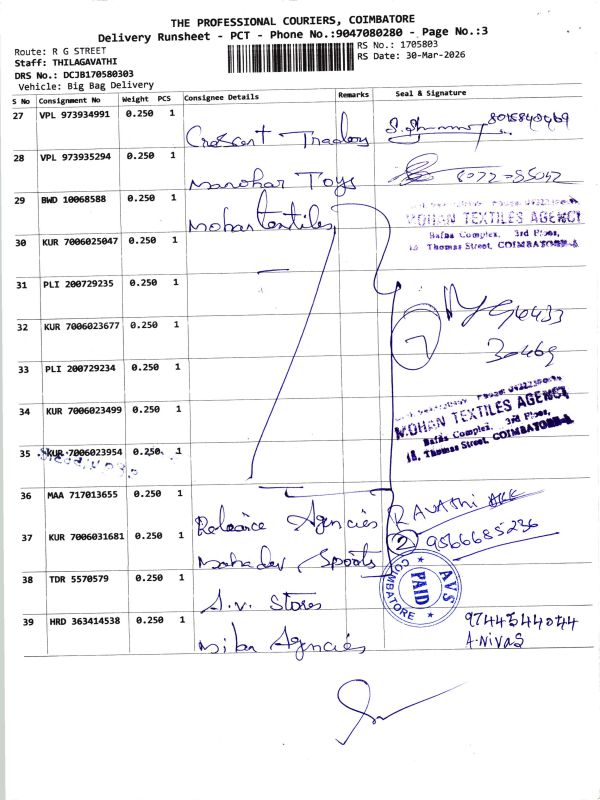 THE PROFESSIONAL COURIERS, COIMBATORE
Delivery Runsheet - PCT - Phone No.:9047080280 - Page No.:3
Route: R G STREET
RS No.: 1705803
Staff: THILAGAVATHI
RS Date: 30-Mar-2026
DRS No.: DCJB170580303
Vehicle: Big Bag Delivery
S No Consignment No Weight PCS Consignee Details Remarks Seal & Signature
27 VPL 973934991 0.250 1
Crescent Traders
28 VPL 973935294 0.250 1
Manohar Toys
29 BWD 10068588 0.250 1
Mohan textiles
MOHAN TEXTILES AGENCY
Bafna Complex, 3rd Floor,
18, Thomas Street, COIMBATORE-1
30 KUR 7006025047 0.250 1
31 PLI 200729235 0.250 1
32 KUR 7006023677 0.250 1
7
33 PLI 200729234 0.250 1
34 KUR 7006023499 0.250 1
MOHAN TEXTILES AGENCY
Bafna Complex, 3rd Floor,
18, Thomas Street, COIMBATORE-1
35 KUR 7006023954 0.250 1
36 MAA 717013655 0.250 1
Reliance Agencies RAVATHI
37 KUR 7006031681 0.250 1
2 9566685236
Mahadev Sports
38 TDR 5570579 0.250 1
AVS PAID COIMBATORE
A.V. Stores
39 HRD 363414538 0.250 1
9744544044
A.NIVAS
Agencies